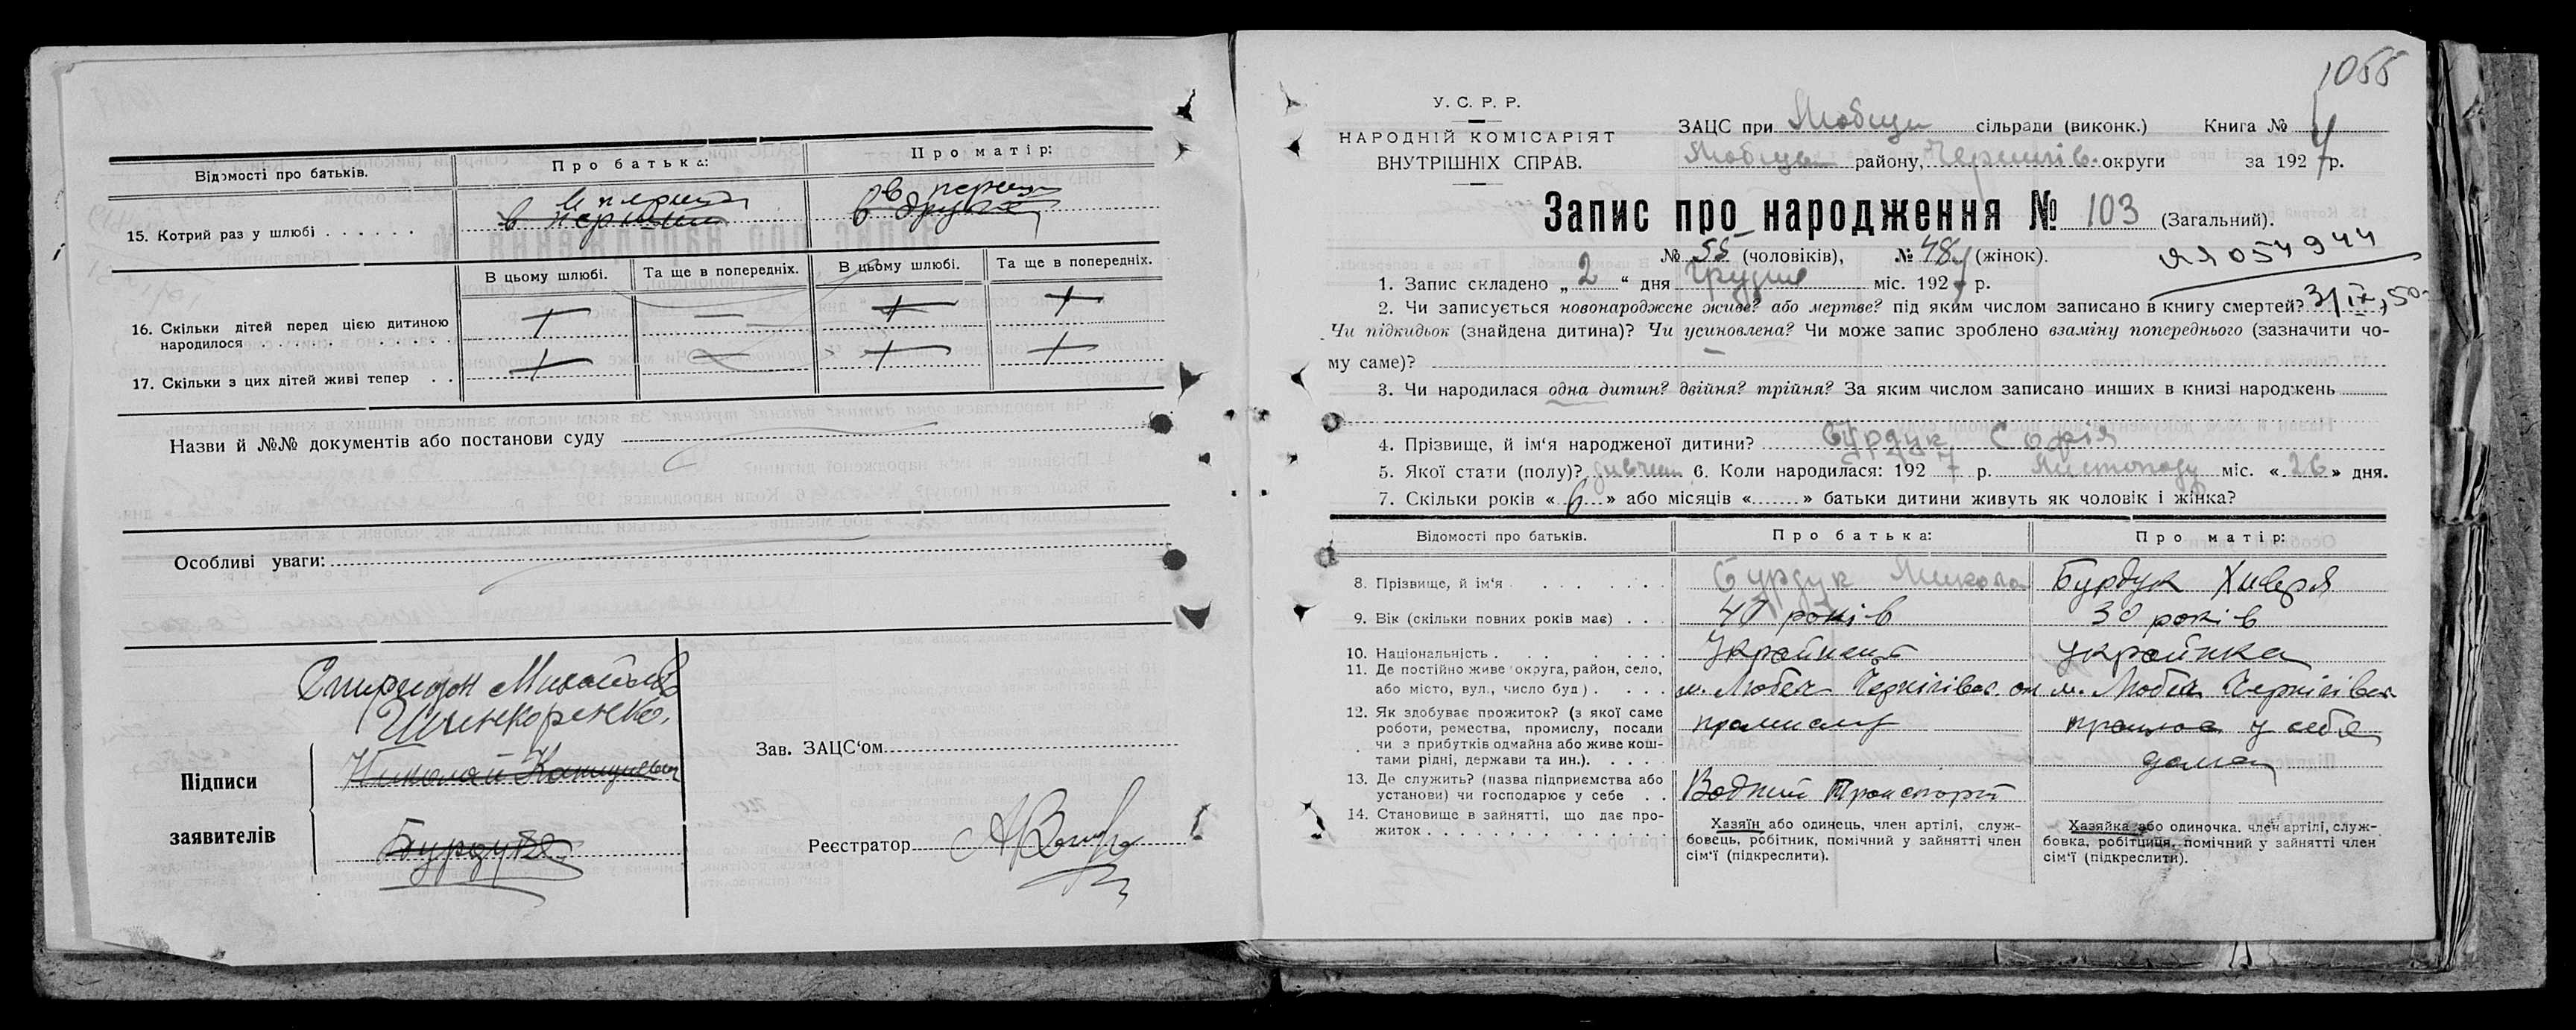 Відомості про батьків.
Про батька:
Про матір:
15. Котрий раз у шлюбі . . . . . .
в первий
в перший
в перш
в друге
В цьому шлюбі.
Та ще в попередніх.
В цьому шлюбі.
Та ще в попередніх.
16. Скільки дітей перед цією дитиною
народилося . . . . . .
17. Скільки з цих дітей живі тепер . .
Назви й №№ документів або постанови суду
Особливі уваги:
Підписи
заявителів
Спиридон Михайлов
Шинкоренко.
Николай
Бурдука
Зав. ЗАЦС‘ом
Реєстратор
1055
У. С. Р. Р.
НАРОДНІЙ КОМІСАРІЯТ
ВНУТРІШНІХ СПРАВ.
ЗАЦС при Любецк сільради (виконк.) Книга № 4
Любецьк району, Чернигів. округи за 1927 р.
Запис про народження № 103 (Загальний).
№ 55 (чоловіків), № 48 (жінок).
ЯЯ 054944
1. Запис складено „ 2 “ дня Грудня міс. 1927 р.
2. Чи записується новонароджене живе? або мертве? під яким числом записано в книгу смертей? 3/IX, 50.
Чи підкидьок (знайдена дитина)? Чи усиновлена? Чи може запис зроблено взаміну попереднього (зазначити чо-
му саме)?
3. Чи народилася одна дитин? двійня? трійня? За яким числом записано инших в книзі народжень
4. Прізвище, й ім‘я народженої дитини? Бурдук Софія
5. Якої стати (полу)? дивчин 6. Коли народилася: 1927 р. Листопаду міс. « 26 » дня.
7. Скільки років « 6 » або місяців « » батьки дитини живуть як чоловік і жінка?
Відомості про батьків.
Про батька:
Про матір:
8. Прізвище, й ім‘я
Бурдук Микола
Бурдук Хивря
9. Вік (скільки повних років має) . . .
40 років
30 років
10. Національність
Украйнець
украйнка
11. Де постійно живе округа, район, село,
або місто, вул., число буд.) . . . .
м. Любеч Чернігівс. ок
м. Любеч Чернігівск
12. Як здобуває прожиток? (з якої саме
роботи, ремества, промислу, посади
чи з прибутків одмайна або живе кош-
тами рідні, держави та ин.). . . . .
промислу
у себе
дома
13. Де служить? (назва підприємства або
установи) чи господарює у себе . .
Водний Транспорт
14. Становище в зайнятті, що дає про-
житок . . . . . . . . . . . . .
Хазяїн або одинець, член артілі, служ-
бовець, робітник, помічний у зайнятті член
сім‘ї (підкреслити).
Хазяйка або одиночка. член артілі, служ-
бовка, робітниця, помічний у зайнятті член
сім‘ї (підкреслити).